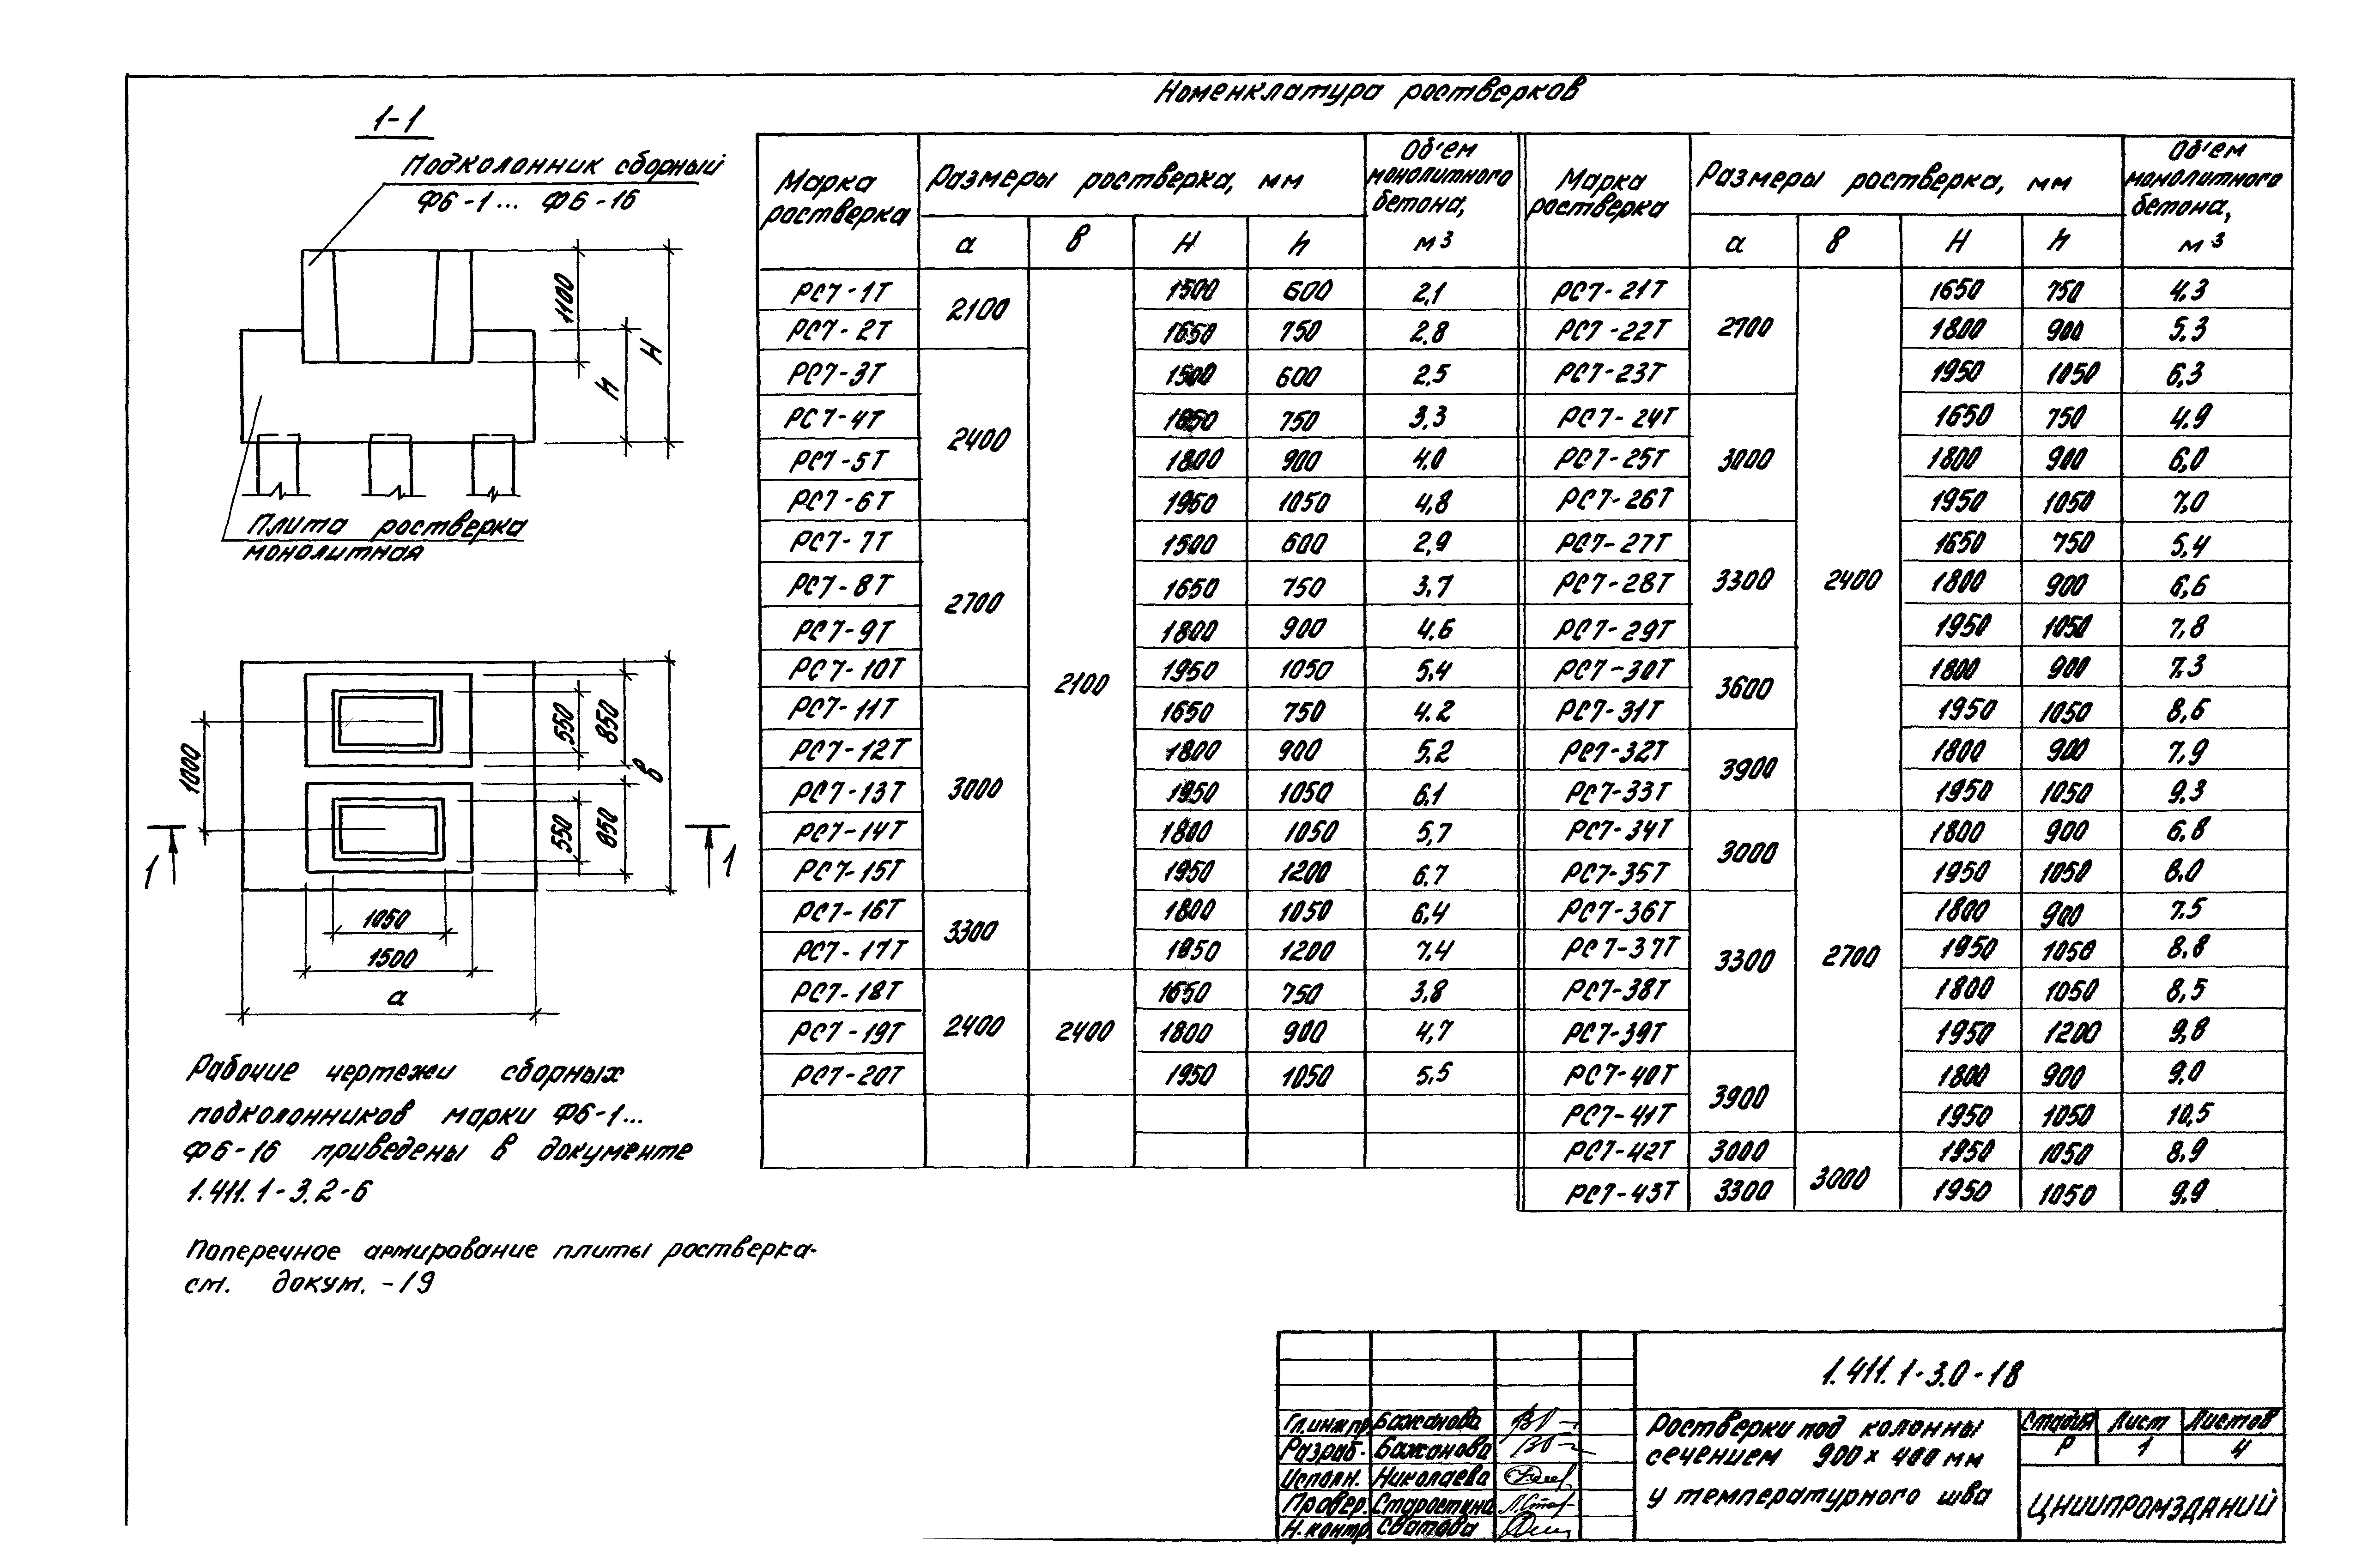 Номенклатура ростверков
1-1
Подколонник сборный
Ф6-1... Ф6-16
1100
h
H
Плита ростверка
монолитная
550
850
1000
в
550
850
1
1
1050
1500
а
Рабочие чертежи сборных
подколонников марки Ф6-1...
Ф6-16 приведены в документе
1.411.1-3.2-6
Поперечное армирование плиты ростверка-
см. докум. -19
Марка ростверка | Размеры ростверка, мм | Об'ем монолитного бетона, м3
а | в | H | h
РС7-1Т | 2100 | 2100 | 1500 | 600 | 2,1
РС7-2Т | 1650 | 750 | 2.8
РС7-3Т | 2400 | 1500 | 600 | 2,5
РС7-4Т | 1650 | 750 | 3,3
РС7-5Т | 1800 | 900 | 4.0
РС7-6Т | 1950 | 1050 | 4,8
РС7-7Т | 2700 | 1500 | 600 | 2,9
РС7-8Т | 1650 | 750 | 3,7
РС7-9Т | 1800 | 900 | 4.6
РС7-10Т | 1950 | 1050 | 5,4
РС7-11Т | 3000 | 1650 | 750 | 4.2
РС7-12Т | 1800 | 900 | 5,2
РС7-13Т | 1950 | 1050 | 6.1
РС7-14Т | 1800 | 1050 | 5,7
РС7-15Т | 1950 | 1200 | 6.7
РС7-16Т | 3300 | 1800 | 1050 | 6,4
РС7-17Т | 1950 | 1200 | 7,4
РС7-18Т | 2400 | 2400 | 1650 | 750 | 3,8
РС7-19Т | 1800 | 900 | 4,7
РС7-20Т | 1950 | 1050 | 5,5
Марка ростверка | Размеры ростверка, мм | Об'ем монолитного бетона, м3
а | в | H | h
РС7-21Т | 2700 | 2400 | 1650 | 750 | 4.3
РС7-22Т | 1800 | 900 | 5.3
РС7-23Т | 1950 | 1050 | 6,3
РС7-24Т | 3000 | 1650 | 750 | 4.9
РС7-25Т | 1800 | 900 | 6,0
РС7-26Т | 1950 | 1050 | 7.0
РС7-27Т | 3300 | 1650 | 750 | 5,4
РС7-28Т | 1800 | 900 | 6,6
РС7-29Т | 1950 | 1050 | 7,8
РС7-30Т | 3600 | 1800 | 900 | 7.3
РС7-31Т | 1950 | 1050 | 8,6
РР7-32Т | 3900 | 1800 | 900 | 7,9
РС7-33Т | 1950 | 1050 | 9.3
РС7-34Т | 3000 | 2700 | 1800 | 900 | 6.8
РС7-35Т | 1950 | 1050 | 8.0
РС7-36Т | 3300 | 1800 | 900 | 7.5
РС7-37Т | 1950 | 1050 | 8.8
РС7-38Т | 1800 | 1050 | 8,5
РС7-39Т | 1950 | 1200 | 9,8
РС7-40Т | 3900 | 1800 | 900 | 9.0
РС7-41Т | 1950 | 1050 | 10,5
РС7-42Т | 3000 | 3000 | 1950 | 1050 | 8.9
РС7-43Т | 3300 | 1950 | 1050 | 9.9
1.411.1-3.0-18
Гл.инж.пр. Бажанова
Разраб. Бажанова
Исполн. Николаева
Провер. Старостина
Н.контр. Сватова
Ростверки под колонны
сечением 900х400 мм
у температурного шва
Стадия Лист Листов
Р 1 4
ЦНИИПРОМЗДАНИЙ